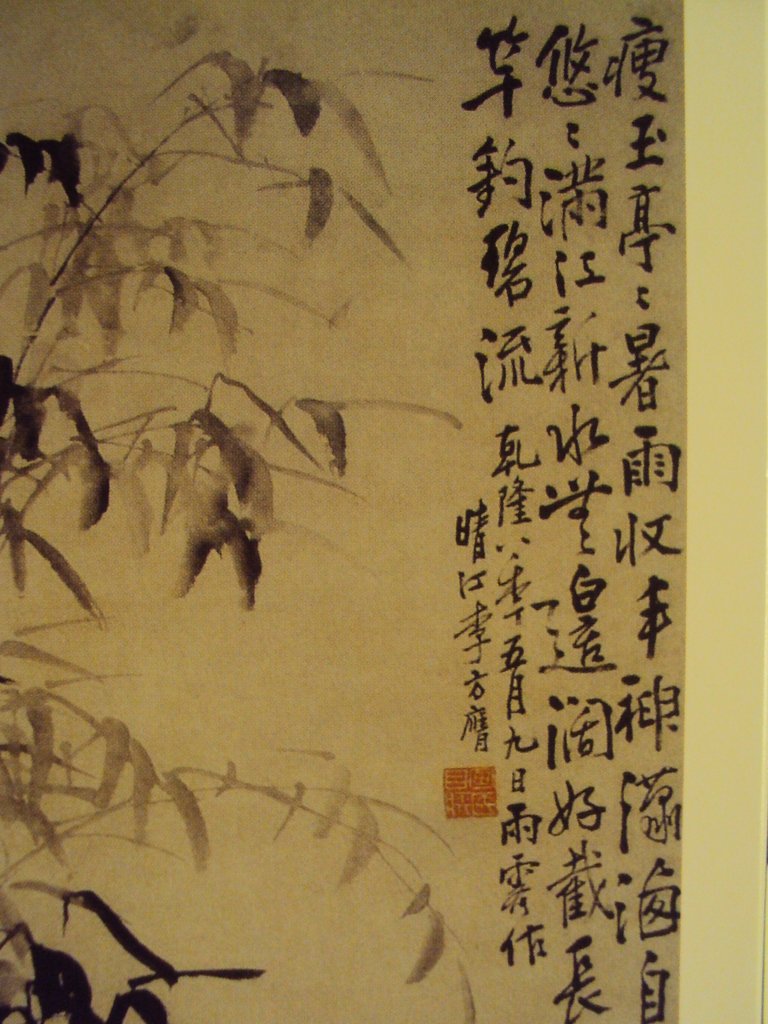 瘦玉亭〻暑雨收丰神瀟洒自
悠〻滿江新水無邊闊好截長
竿釣碧流
乾隆八年五月九日雨霽作
晴江李方膺